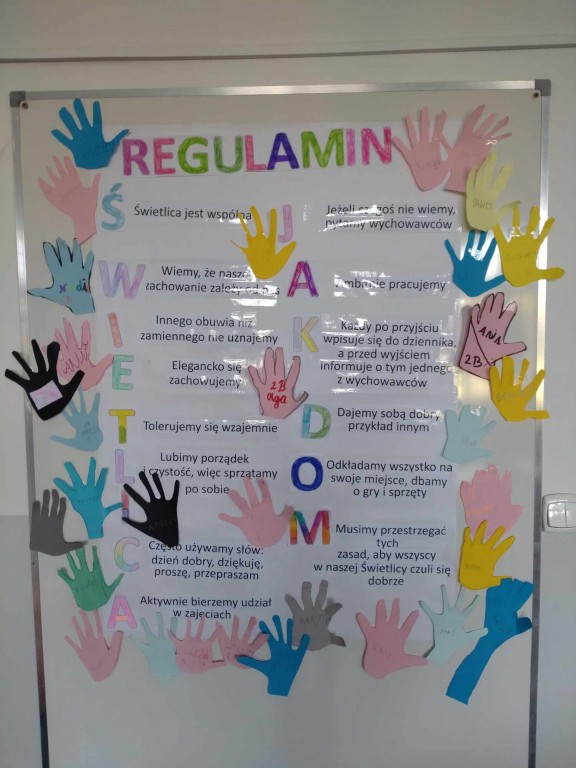 REGULAMIN
Ś
Świetlica jest wspólna
W
Wiemy, że nasze
zachowanie zależy od nas
I
Innego obuwia niż
zamiennego nie uznajemy
E
Elegancko się
zachowujemy
T
Tolerujemy się wzajemnie
L
Lubimy porządek
i czystość, więc sprzątamy
po sobie
I
C
Często używamy słów:
dzień dobry, dziękuję,
proszę, przepraszam
A
Aktywnie bierzemy udział
w zajęciach
J
Jeżeli czegoś nie wiemy,
pytamy wychowawców
A
Ambitnie pracujemy
K
Każdy po przyjściu
wpisuje się do dziennika,
a przed wyjściem
informuje o tym jednego
z wychowawców
D
Dajemy sobą dobry
przykład innym
O
Odkładamy wszystko na
swoje miejsce, dbamy
o gry i sprzęty
M
Musimy przestrzegać
tych
zasad, aby wszyscy
w naszej Świetlicy czuli się
dobrze
2B
Olga
ANIA
2B